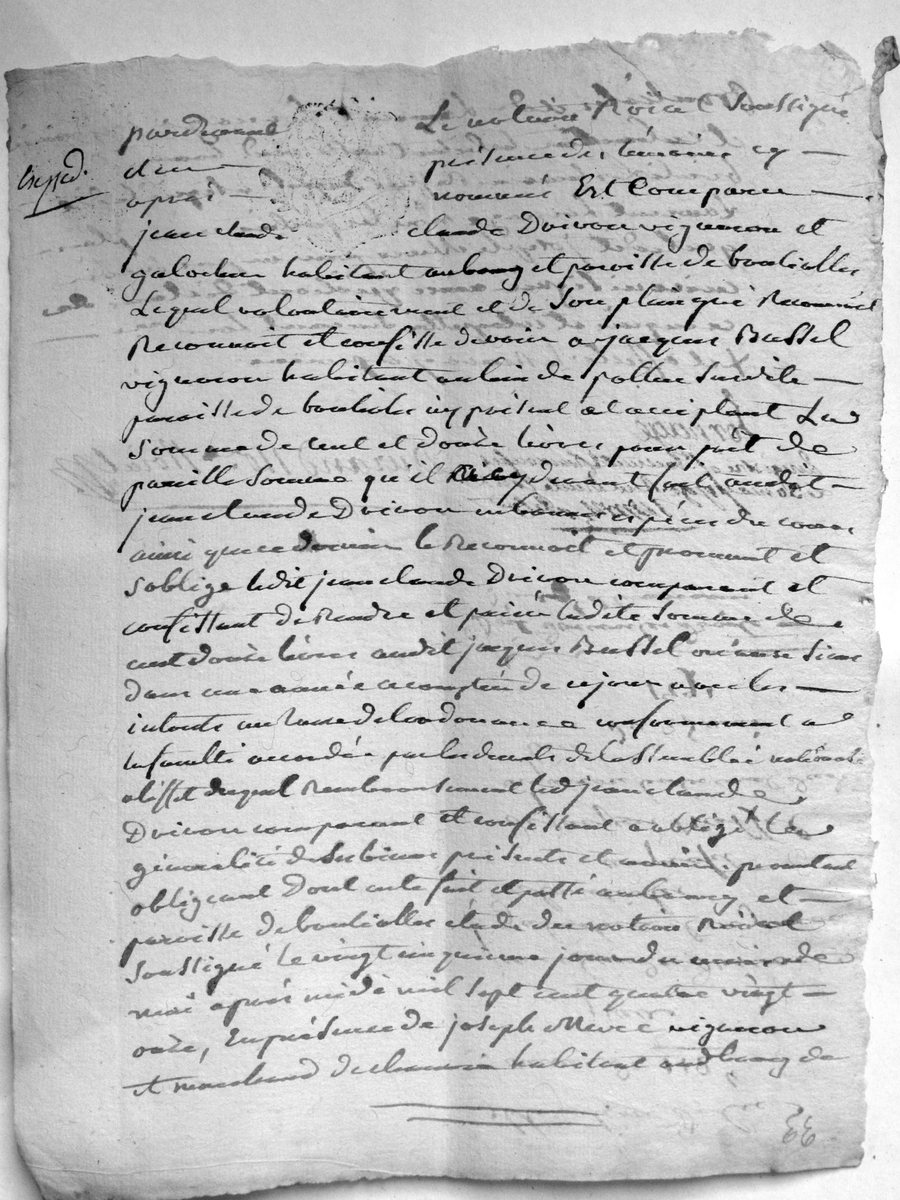 Exped.
pardevant Le notaire Roial Soussigné
et en présence des témoins cy
après nommés Est Comparu
jean claude claude Drivon vigneron et
galocher habitant au bourg et paroisse de
Lequel volontairement et de Son plein gré Reconnoit
Reconnoit et confesse devoir a jacques Bussel
vigneron habitant au lieu de susdite
paroisse de icy présent et acceptant La
Somme de cent et douze livres pour prêt de
pareille Somme qu'il cy devant fait audit
jean claude Drivon en bonnes espèces du cours
ainsi que ce dernier le Reconnoit et promet et
s'oblige ledit jean claude Drivon comparant et
confessant de Rendre et paier ladite Somme de
cent douze livres audit jacques Bussel ou aux Siens
dans une année a compter de ce jour avec les
intérêts au taux de l'ordonnance conformement a
la faculté accordée par les décrets de l'assemblée nationale
a l'effet duquel Remboursement led jean claude
Drivon comparant et confessant a obligé La
généralité de Ses biens présents et avenir promettant
obligeant Dont acte fait et passé au bourg et
paroisse de étude du notaire Roial
Soussigné Le vingt cinquieme jour du mois de
mai après midi mil sept cent quatre vingt
onze, En présence de joseph vigneron
et marchand de habitant audit bourg de